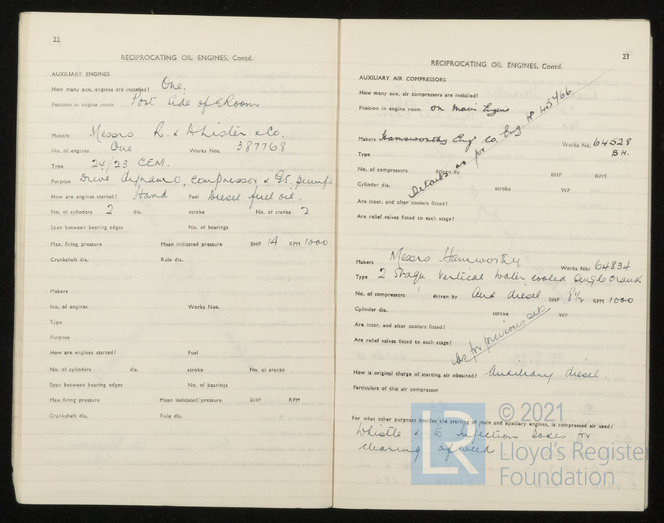 22
RECIPROCATING OIL ENGINES, Contd.
AUXILIARY ENGINES
How many aux. engines are installed? One.
Position in engine room Port side of E Room
Makers Messrs R. & A Lister & Co.
No. of engines One. Works Nos. 387768
Type 24/23 CEM.
Purpose Drive dynamo, compressor & G.S. pump
How are engines started? Hand Fuel Diesel fuel oil.
No. of cylinders 2 dia. stroke No. of cranks 2
Span between bearing edges No. of bearings
Max. firing pressure Mean indicated pressure BHP 14 RPM 1000
Crankshaft dia. Rule dia.
Makers
No. of engines Works Nos.
Type
Purpose
How are engines started? Fuel
No. of cylinders dia. stroke No. of cranks
Span between bearing edges No. of bearings
Max. firing pressure Mean indicated pressure BHP RPM
Crankshaft dia. Rule dia.
23
RECIPROCATING OIL ENGINES, Contd.
AUXILIARY AIR COMPRESSORS
How many aux. air compressors are installed?
Position in engine room on Main Engine
Makers Hamworthy Eng Co. Works No. 64528
Type BH.
Details as for Eng No 45766
No. of compressors driven by BHP RPM
Cylinder dia. stroke WP
Are inter. and after coolers fitted?
Are relief valves fitted to each stage?
Makers Messrs Hamworthy Works No. 64834
Type 2 Stage Vertical water cooled single crank
No. of compressors 1 driven by Aux diesel BHP 8½ RPM 1000
Cylinder dia. stroke WP
Are inter. and after coolers fitted?
Are relief valves fitted to each stage?
as for previous sets
How is original charge of starting air obtained? Auxiliary diesel.
Particulars of this air compressor
For what other purposes besides the starting of main and auxiliary engines, is compressed air used?
Whistle & to injection boxes for
clearing of weed
LR
© 2021
Lloyd's Register
Foundation